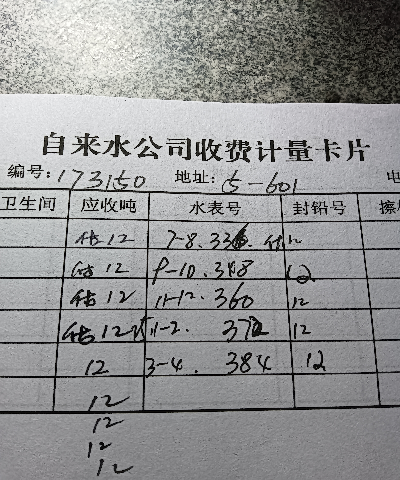 自来水公司收费计量卡片
编号: 173150 地址: 5-601 电
卫生间 应收吨 水表号 封铅号 擦
估12 7-8. 336. 估12
估12 9-10. 348 12
估12 11-12. 360 12
估12 11-2. 372 12
12 3-4. 384 12
12
12
12
12